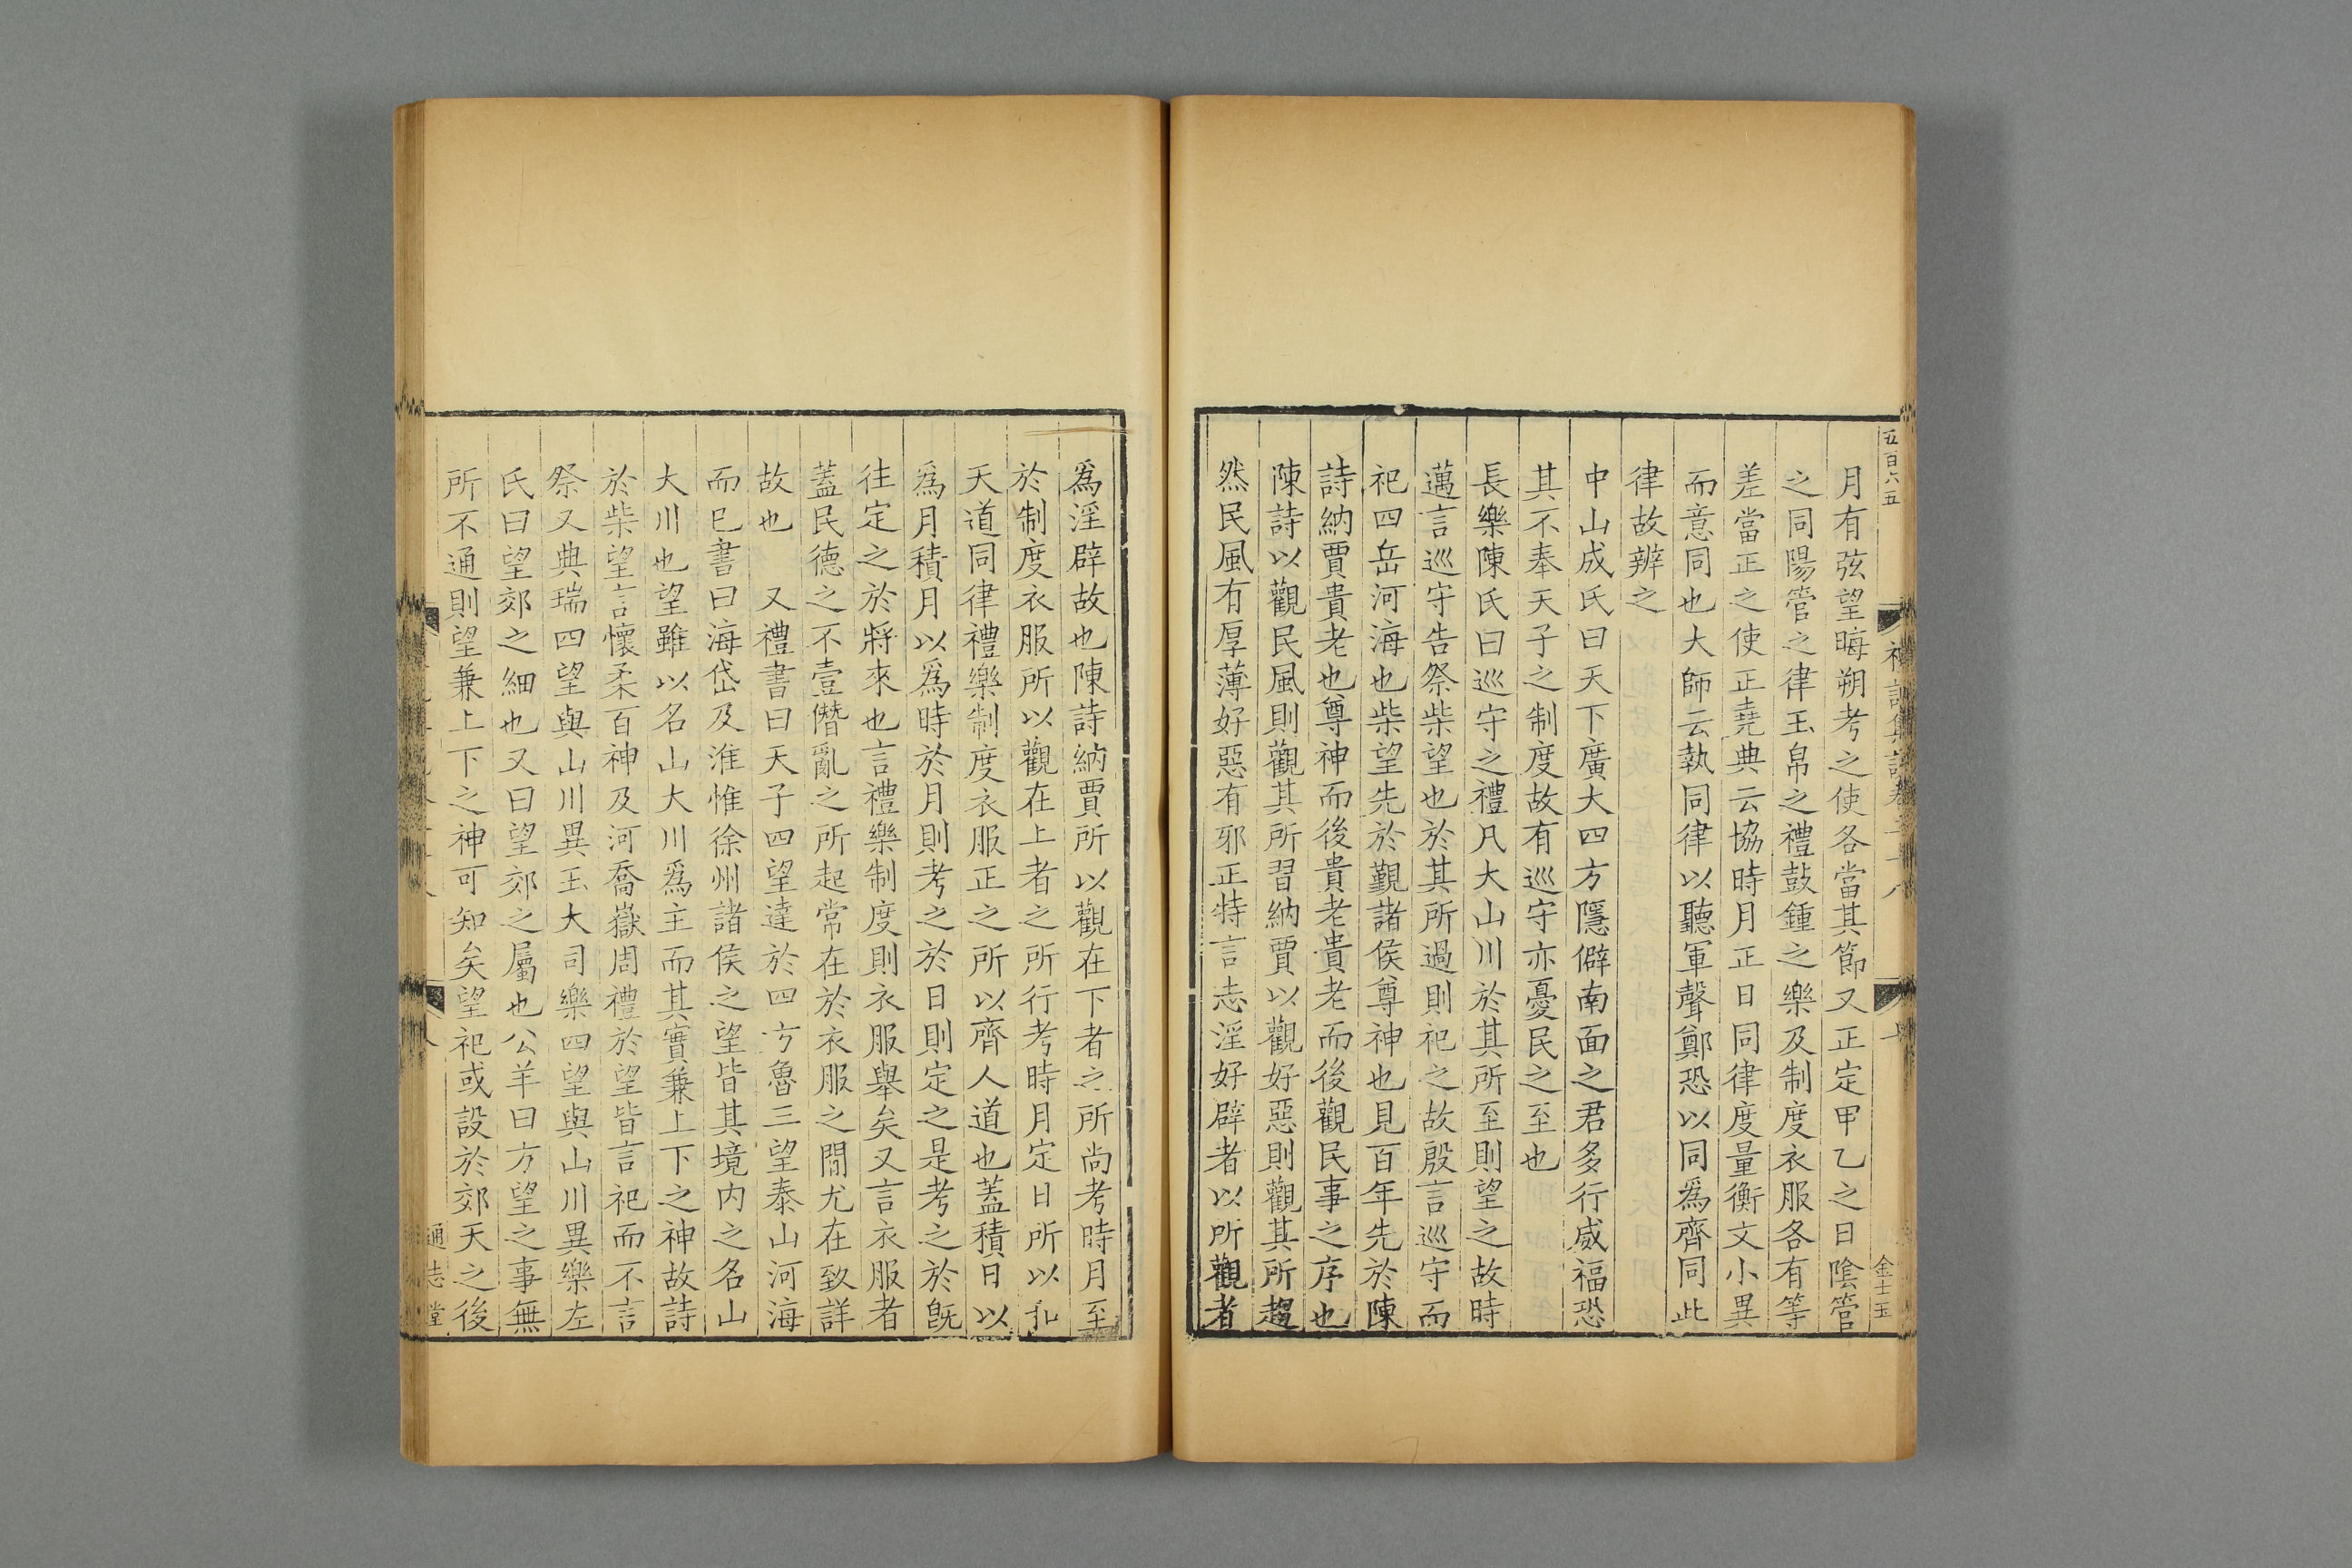 五百六五
金士玉
月有弦望晦朔考之使各當其節又正定甲乙之日陰管
之同陽管之律玉帛之禮鼓鍾之樂及制度衣服各有等
差當正之使正堯典云協時月正日同律度量衡文小異
而意同也大師云執同律以聽軍聲鄭恐以同為齊同此
律故辨之
中山成氏曰天下廣大四方隱僻南面之君多行威福恐
其不奉天子之制度故有巡守亦憂民之至也
長樂陳氏曰巡守之禮凡大山川於其所至則望之故時
邁言巡守告祭柴望也於其所過則祀之故殷言巡守而
祀四岳河海也柴望先於覲諸侯尊神也見百年先於陳
詩納賈貴老也尊神而後貴老貴老而後觀民事之序也
陳詩以觀民風則觀其所習納賈以觀好惡則觀其所趨
然民風有厚薄好惡有邪正特言志淫好辟者以所觀者
為淫辟故也陳詩納賈所以觀在下者之所尚考時月至
於制度衣服所以觀在上者之所行考時月定日所以和
天道同律禮樂制度衣服正之所以齊人道也蓋積日以
為月積月以為時於月則考之於日則定之是考之於旣
往定之於將來也言禮樂制度則衣服舉矣又言衣服者
蓋民德之不壹僭亂之所起常在於衣服之間尤在致詳
故也　又禮書曰天子四望達於四方魯三望泰山河海
而已書曰海岱及淮惟徐州諸侯之望皆其境内之名山
大川也望雖以名山大川為主而其實兼上下之神故詩
於柴望言懷柔百神及河喬嶽周禮於望皆言祀而不言
祭又典瑞四望與山川異玉大司樂四望與山川異樂左
氏曰望郊之細也又曰望郊之屬也公羊曰方望之事無
所不通則望兼上下之神可知矣望祀或設於郊天之後
通志堂